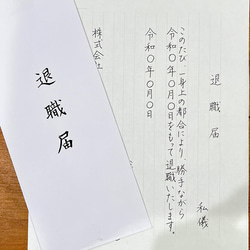 退職届
退職届
私儀
このたび一身上の都合により、勝手ながら
令和〇年〇月〇日をもって退職いたします。
令和〇年〇月〇日
株式会社